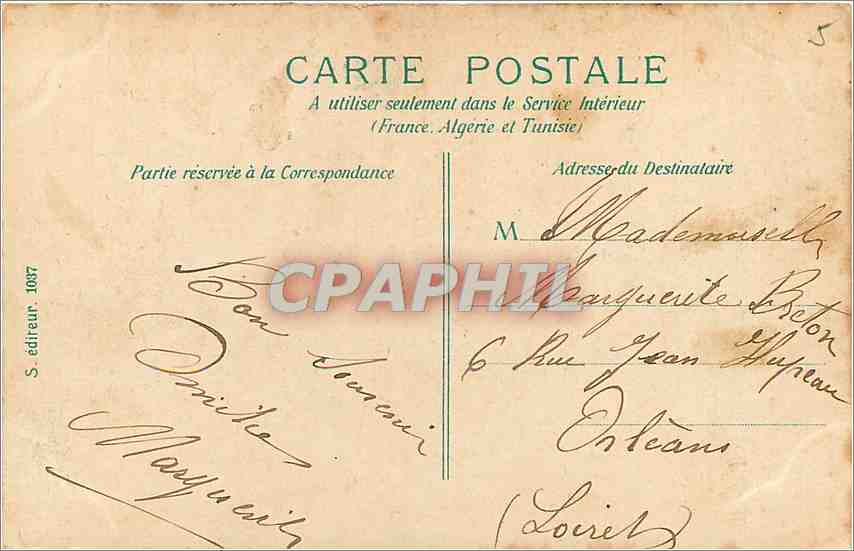 5
CARTE POSTALE
A utiliser seulement dans le Service Intérieur
(France, Algérie et Tunisie)
Partie réservée à la Correspondance
Adresse du Destinataire
S. éditeur. 1087
Bon Souvenir
Amitiés
Marguerite
M Mademoiselle
Marguerite Breton
6 Rue Jean Hupeau
Orléans
(Loiret)
CPAPHIL